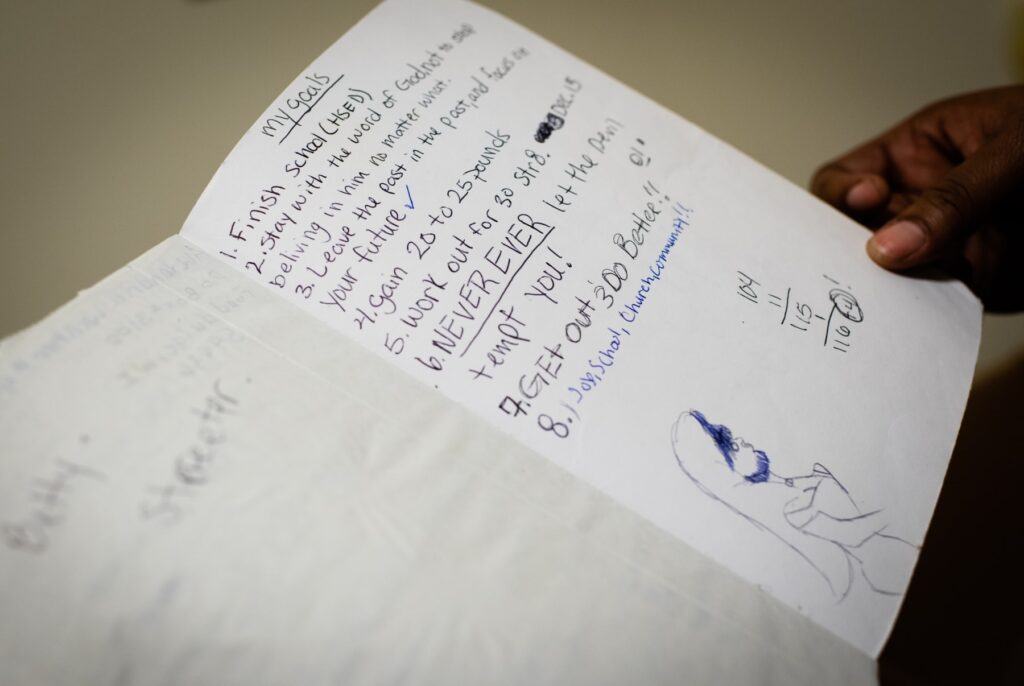 my goals
1. Finish school (HSED)
2. Stay with the word of God, not to stop
beliving in him no matter what.
3. Leave the past in the past, and focus on
your future ✓
4. gain 20 to 25 pounds
5. work out for 30 str8. Dec. 15
6. NEVER EVER let the Devil
tempt you!
7. GET Out! 3 Do Better!!
8. Job, School, Church, Community!!
104
11
115
116
Betty
Streeter.